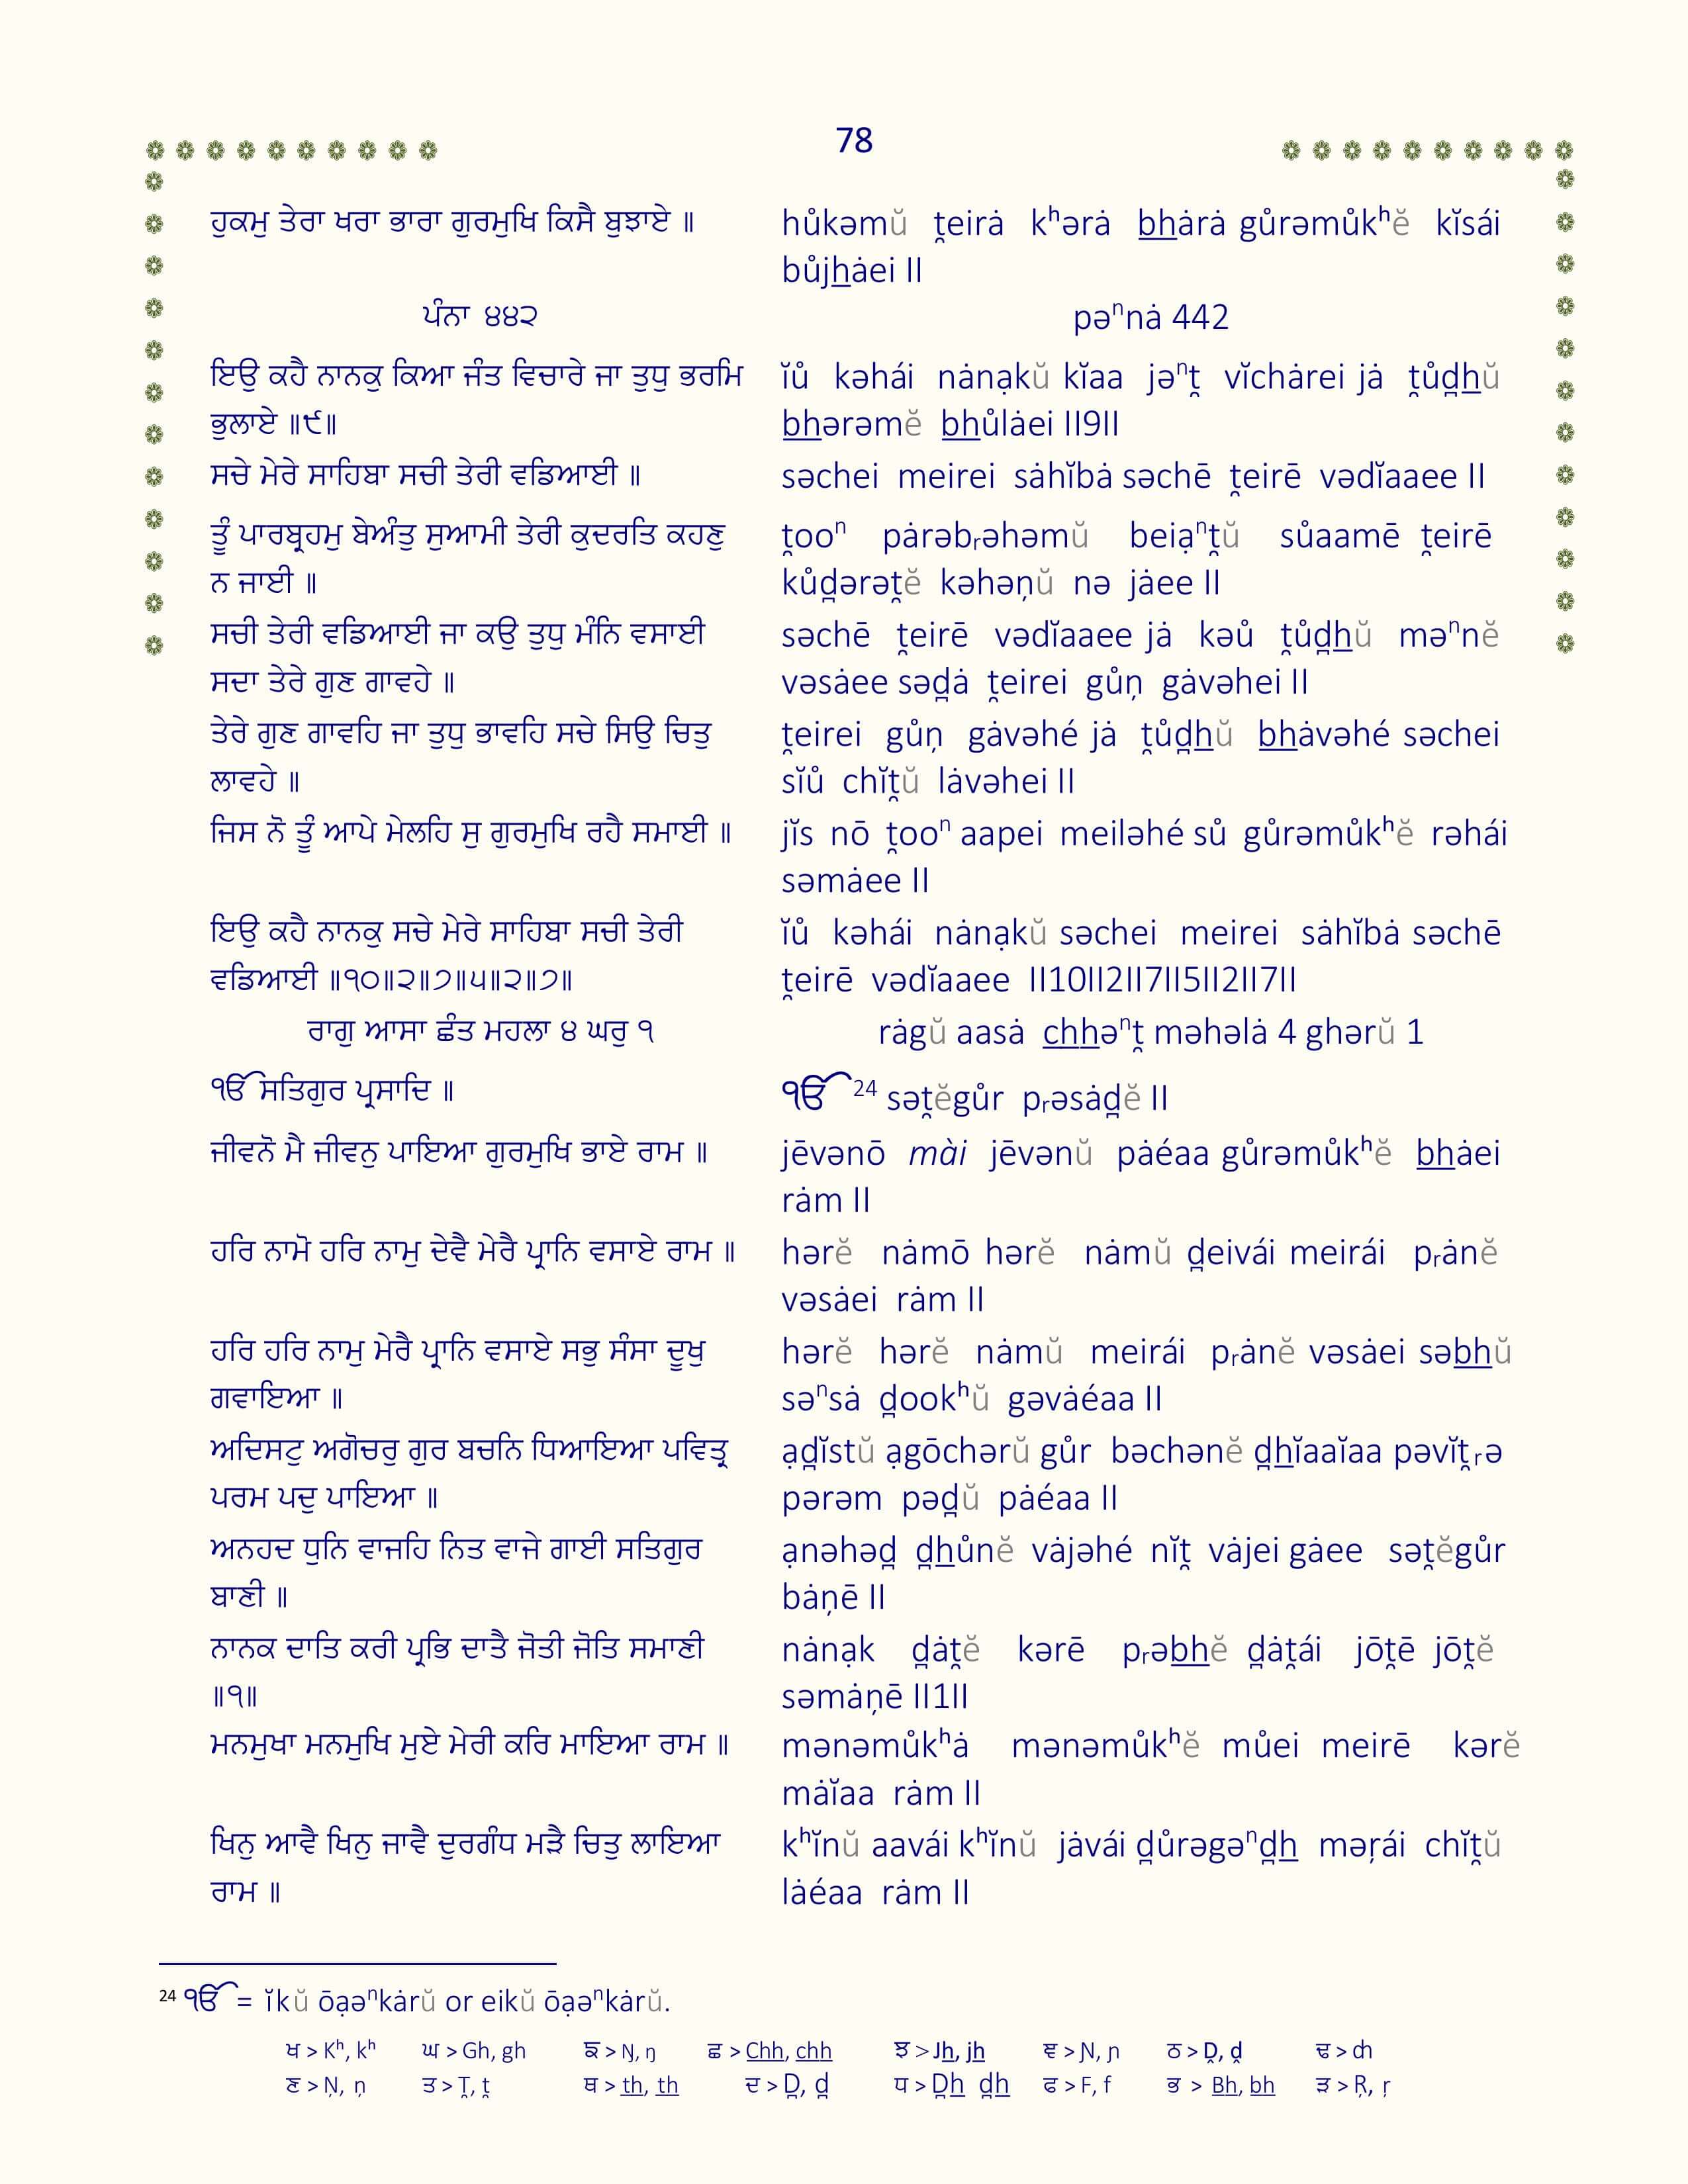 78
ਹੁਕਮੁ ਤੇਰਾ ਖਰਾ ਭਾਰਾ ਗੁਰਮੁਖਿ ਕਿਸੈ ਬੁਝਾਏ ॥
hůkəmŭ t̯eirȧ kʰərȧ b͟hȧrȧ gůrəmůkʰĕ kĭsái
bůjh̲ȧei II
ਪੰਨਾ ੪੪੨
pəⁿnȧ 442
ਇਉ ਕਹੈ ਨਾਨਕੁ ਕਿਆ ਜੰਤ ਵਿਚਾਰੇ ਜਾ ਤੁਧੁ ਭਰਮਿ
ਭੁਲਾਏ ॥੯॥
ĭů kəhái nȧnạkŭ kĭaa jəⁿt̯ vĭchȧrei jȧ t̯ůd̪h̲ŭ
b͟hərəmĕ b͟hůlȧei II9II
ਸਚੇ ਮੇਰੇ ਸਾਹਿਬਾ ਸਚੀ ਤੇਰੀ ਵਡਿਆਈ ॥
səchei meirei sȧhĭbȧ səchē t̯eirē vədĭaaee II
ਤੂੰ ਪਾਰਬ੍ਰਹਮੁ ਬੇਅੰਤੁ ਸੁਆਮੀ ਤੇਰੀ ਕੁਦਰਤਿ ਕਹਣੁ
ਨ ਜਾਈ ॥
t̯ooⁿ pȧrəbᵣəhəmŭ beiạⁿt̯ŭ sůaamē t̯eirē
kůd̪ərət̯ĕ kəhəņŭ nə jȧee II
ਸਚੀ ਤੇਰੀ ਵਡਿਆਈ ਜਾ ਕਉ ਤੁਧੁ ਮੰਨਿ ਵਸਾਈ
ਸਦਾ ਤੇਰੇ ਗੁਣ ਗਾਵਹੇ ॥
səchē t̯eirē vədĭaaee jȧ kəů t̯ůd̪h̲ŭ məⁿnĕ
vəsȧee səd̪ȧ t̯eirei gůņ gȧvəhei II
ਤੇਰੇ ਗੁਣ ਗਾਵਹਿ ਜਾ ਤੁਧੁ ਭਾਵਹਿ ਸਚੇ ਸਿਉ ਚਿਤੁ
ਲਾਵਹੇ ॥
t̯eirei gůņ gȧvəhé jȧ t̯ůd̪h̲ŭ b͟hȧvəhé səchei
sĭů chĭt̯ŭ lȧvəhei II
ਜਿਸ ਨੋ ਤੂੰ ਆਪੇ ਮੇਲਹਿ ਸੁ ਗੁਰਮੁਖਿ ਰਹੈ ਸਮਾਈ ॥
jĭs nō t̯ooⁿ aapei meiləhé sů gůrəmůkʰĕ rəhái
səmȧee II
ਇਉ ਕਹੈ ਨਾਨਕੁ ਸਚੇ ਮੇਰੇ ਸਾਹਿਬਾ ਸਚੀ ਤੇਰੀ
ਵਡਿਆਈ ॥੧੦॥੨॥੭॥੫॥੨॥੭॥
ĭů kəhái nȧnạkŭ səchei meirei sȧhĭbȧ səchē
t̯eirē vədĭaaee II10II2II7II5II2II7II
ਰਾਗੁ ਆਸਾ ਛੰਤ ਮਹਲਾ ੪ ਘਰੁ ੧
rȧgŭ aasȧ c͟hh̲əⁿt̯ məhəlȧ 4 ghərŭ 1
ੴ ਸਤਿਗੁਰ ਪ੍ਰਸਾਦਿ ॥
ੴ ²⁴ sət̯ĕgůr pᵣəsȧd̪ĕ II
ਜੀਵਨੋ ਮੈ ਜੀਵਨੁ ਪਾਇਆ ਗੁਰਮੁਖਿ ਭਾਏ ਰਾਮ ॥
jēvənō mài jēvənŭ pȧéaa gůrəmůkʰĕ b͟hȧei
rȧm II
ਹਰਿ ਨਾਮੋ ਹਰਿ ਨਾਮੁ ਦੇਵੈ ਮੇਰੈ ਪ੍ਰਾਨਿ ਵਸਾਏ ਰਾਮ ॥
hərĕ nȧmō hərĕ nȧmŭ d̪eivái meirái pᵣȧnĕ
vəsȧei rȧm II
ਹਰਿ ਹਰਿ ਨਾਮੁ ਮੇਰੈ ਪ੍ਰਾਨਿ ਵਸਾਏ ਸਭੁ ਸੰਸਾ ਦੂਖੁ
ਗਵਾਇਆ ॥
hərĕ hərĕ nȧmŭ meirái pᵣȧnĕ vəsȧei səb͟hŭ
səⁿsȧ d̪ookʰŭ gəvȧéaa II
ਅਦਿਸਟੁ ਅਗੋਚਰੁ ਗੁਰ ਬਚਨਿ ਧਿਆਇਆ ਪਵਿਤ੍ਰ
ਪਰਮ ਪਦੁ ਪਾਇਆ ॥
ạd̪ĭstŭ ạgōchərŭ gůr bəchənĕ d̪h̲ĭaaĭaa pəvĭt̯ᵣə
pərəm pəd̪ŭ pȧéaa II
ਅਨਹਦ ਧੁਨਿ ਵਾਜਹਿ ਨਿਤ ਵਾਜੇ ਗਾਈ ਸਤਿਗੁਰ
ਬਾਣੀ ॥
ạnəhəd̪ d̪h̲ůnĕ vȧjəhé nĭt̯ vȧjei gȧee sət̯ĕgůr
bȧņē II
ਨਾਨਕ ਦਾਤਿ ਕਰੀ ਪ੍ਰਭਿ ਦਾਤੈ ਜੋਤੀ ਜੋਤਿ ਸਮਾਣੀ
॥੧॥
nȧnạk d̪ȧt̯ĕ kərē pᵣəb͟hĕ d̪ȧt̯ái jōt̯ē jōt̯ĕ
səmȧņē II1II
ਮਨਮੁਖਾ ਮਨਮੁਖਿ ਮੁਏ ਮੇਰੀ ਕਰਿ ਮਾਇਆ ਰਾਮ ॥
mənəmůkʰȧ mənəmůkʰĕ můei meirē kərĕ
mȧĭaa rȧm II
ਖਿਨੁ ਆਵੈ ਖਿਨੁ ਜਾਵੈ ਦੁਰਗੰਧ ਮੜੈ ਚਿਤੁ ਲਾਇਆ
ਰਾਮ ॥
kʰĭnŭ aavái kʰĭnŭ jȧvái d̪ůrəgəⁿd̪h̲ məŗái chĭt̯ŭ
lȧéaa rȧm II
²⁴ ੴ = ĭkŭ ōạəⁿkȧrŭ or eikŭ ōạəⁿkȧrŭ.
ਖ > Kʰ, kʰ ਘ > Gh, gh ਙ > Ŋ, ŋ ਛ > C͟hh̲, c͟hh̲ ਝ > Jh̲, jh̲ ਞ > Ɲ, ɲ ਠ > D̯, d̯ ਢ > ȸ
ਣ > Ņ, ņ ਤ > T̯, t̯ ਥ > t͟h, t͟h ਦ > D̪, d̪ ਧ > D̪h̲ d̪h̲ ਫ > F, f ਭ > B͟h, b͟h ੜ > Ŗ, ŗ